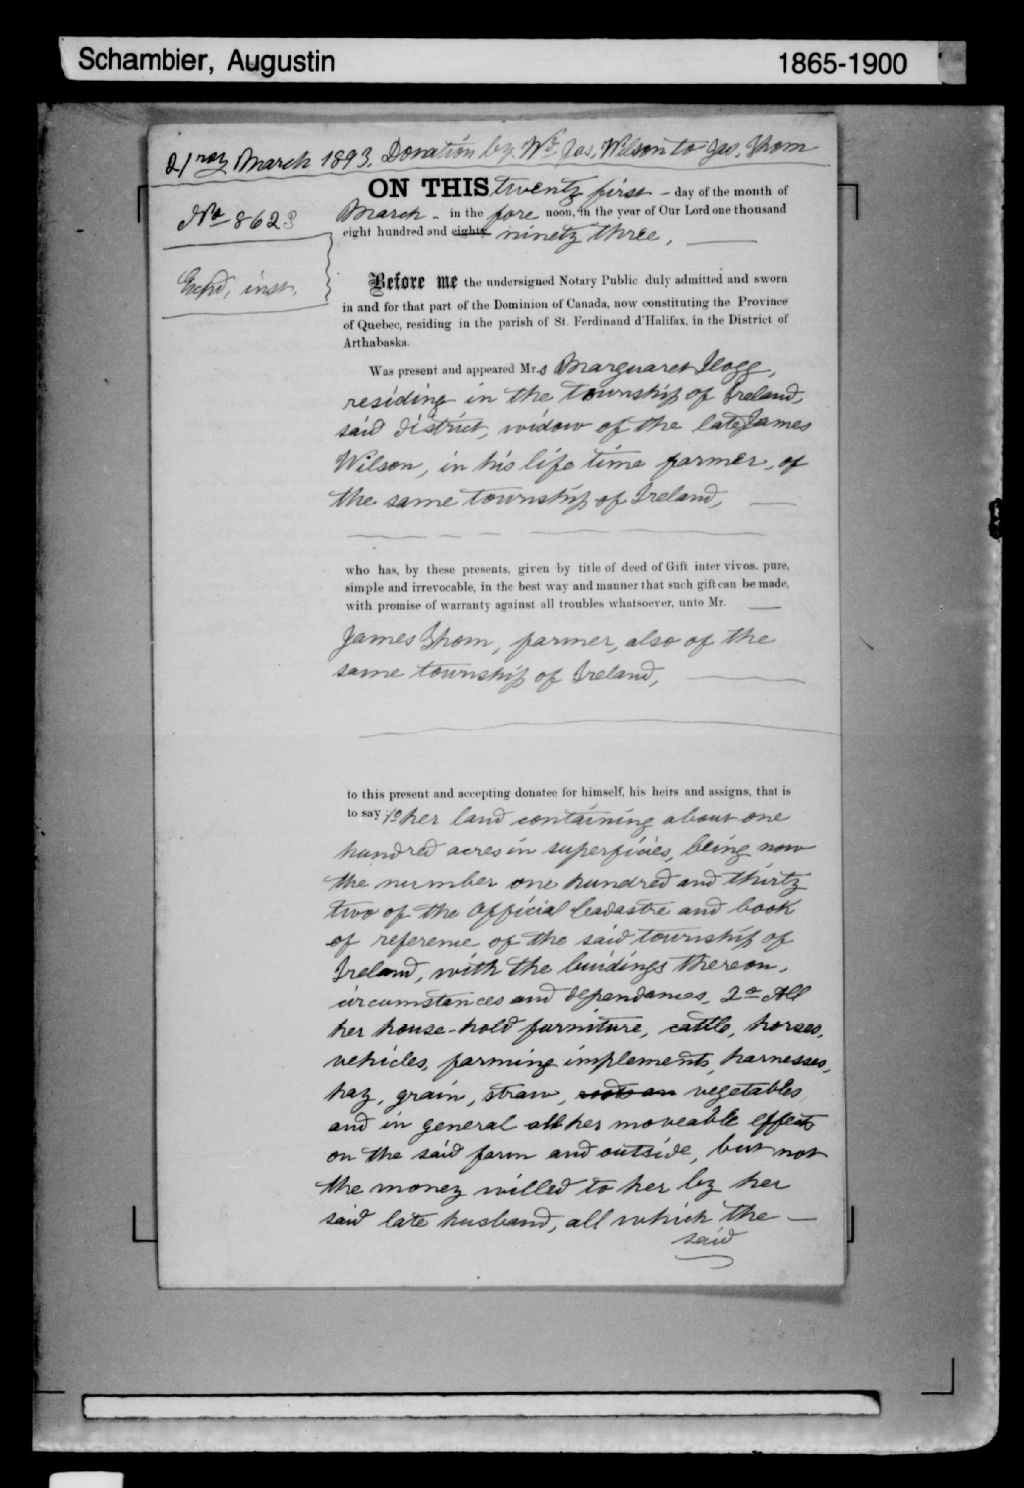 Schambier, Augustin
1865-1900
21 March 1893. Donation by Wd. Jas. Wilson to Jas. Thom
No 8623
inst.
ON THIS twenty first - day of the month of
March - in the fore noon, in the year of Our Lord one thousand
eight hundred and eighty ninety three,
Before me the undersigned Notary Public duly admitted and sworn
in and for that part of the Dominion of Canada, now constituting the Province
of Quebec, residing in the parish of St. Ferdinand d'Halifax, in the District of
Arthabaska.
Was present and appeared Mrs Marguaret Hogg,
residing in the township of Ireland,
said district, widow of the late James
Wilson, in his life time farmer, of
the same township of Ireland,
who has, by these presents, given by title of deed of Gift inter vivos, pure,
simple and irrevocable, in the best way and manner that such gift can be made,
with promise of warranty against all troubles whatsoever, unto Mr.
James Thom, farmer, also of the
same township of Ireland,
to this present and accepting donatee for himself, his heirs and assigns, that is
to say 1o her land containing about one
hundred acres in superficies, being now
the number one hundred and thirty
two of the Official Cadastre and book
of referense of the said township of
Ireland, with the buidings thereon,
circumstances and dependances, 2o All
her house-hold furniture, cattle, horses,
vehicles, farming implements, harnesses,
hay, grain, straw, roots an vegetables,
and in general all her moveable effects
on the said farm and outside, but not
the money willed to her by her
said late husband, all which the -
said